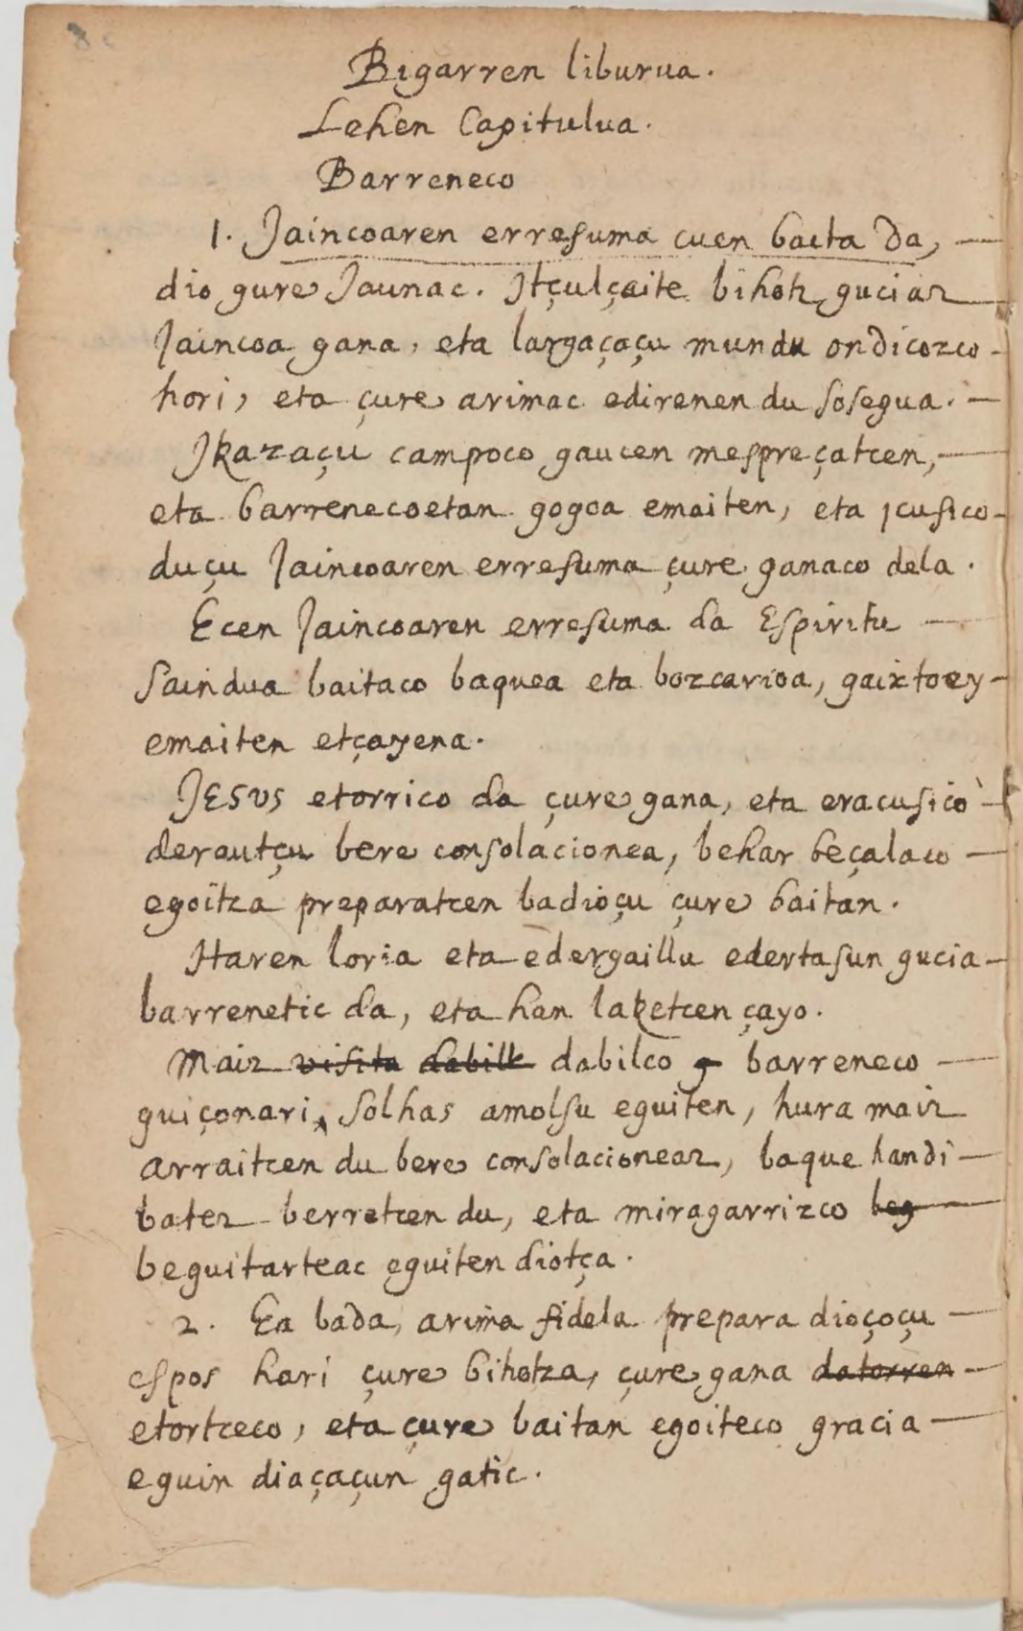 Bigarren liburua.
Lehen Capitulua.
Barreneco
1. Jaincoaren erresuma cuen baita da,
dio gure Jaunac. Itçulçaite bihotz guciaz
Jaincoa gana, eta largaçaçu mundu ondicozco
hori, eta çure arimac edirenen du sosegua.
Ikazaçu campoco gaucen mespreçatcen,
eta barrenecoetan gogoa emaiten, eta icusico
duçu Jaincoaren erresuma çure ganaco dela.
Ecen Jaincoaren erresuma da Espiritu
Saindua baitaco baquea eta bozcarioa, gaixtoey
emaiten etçayena.
JESUS etorrico da çure gana, eta eracusico
derautçu bere consolacionea, behar beçalaco
egoitza preparatcen badioçu çure baitan.
Haren loria eta edergaillu edertasun gucia
barrenetic da, eta han laketcen çayo.
Maiz visita dabilk dabilco barreneco
guiçonari, Solhas amolsu eguiten, hura maiz
arraitcen du bere consolacioneaz, baque handi
batez berretcen du, eta miragarrizco beg
beguitarteac eguiten diotça.
2. Ea bada, arima fidela prepara dioçoçu
espos hari çure bihotza, çure gana datorren
etortceco, eta çure baitan egoiteco gracia
eguin diaçaçun gatic.